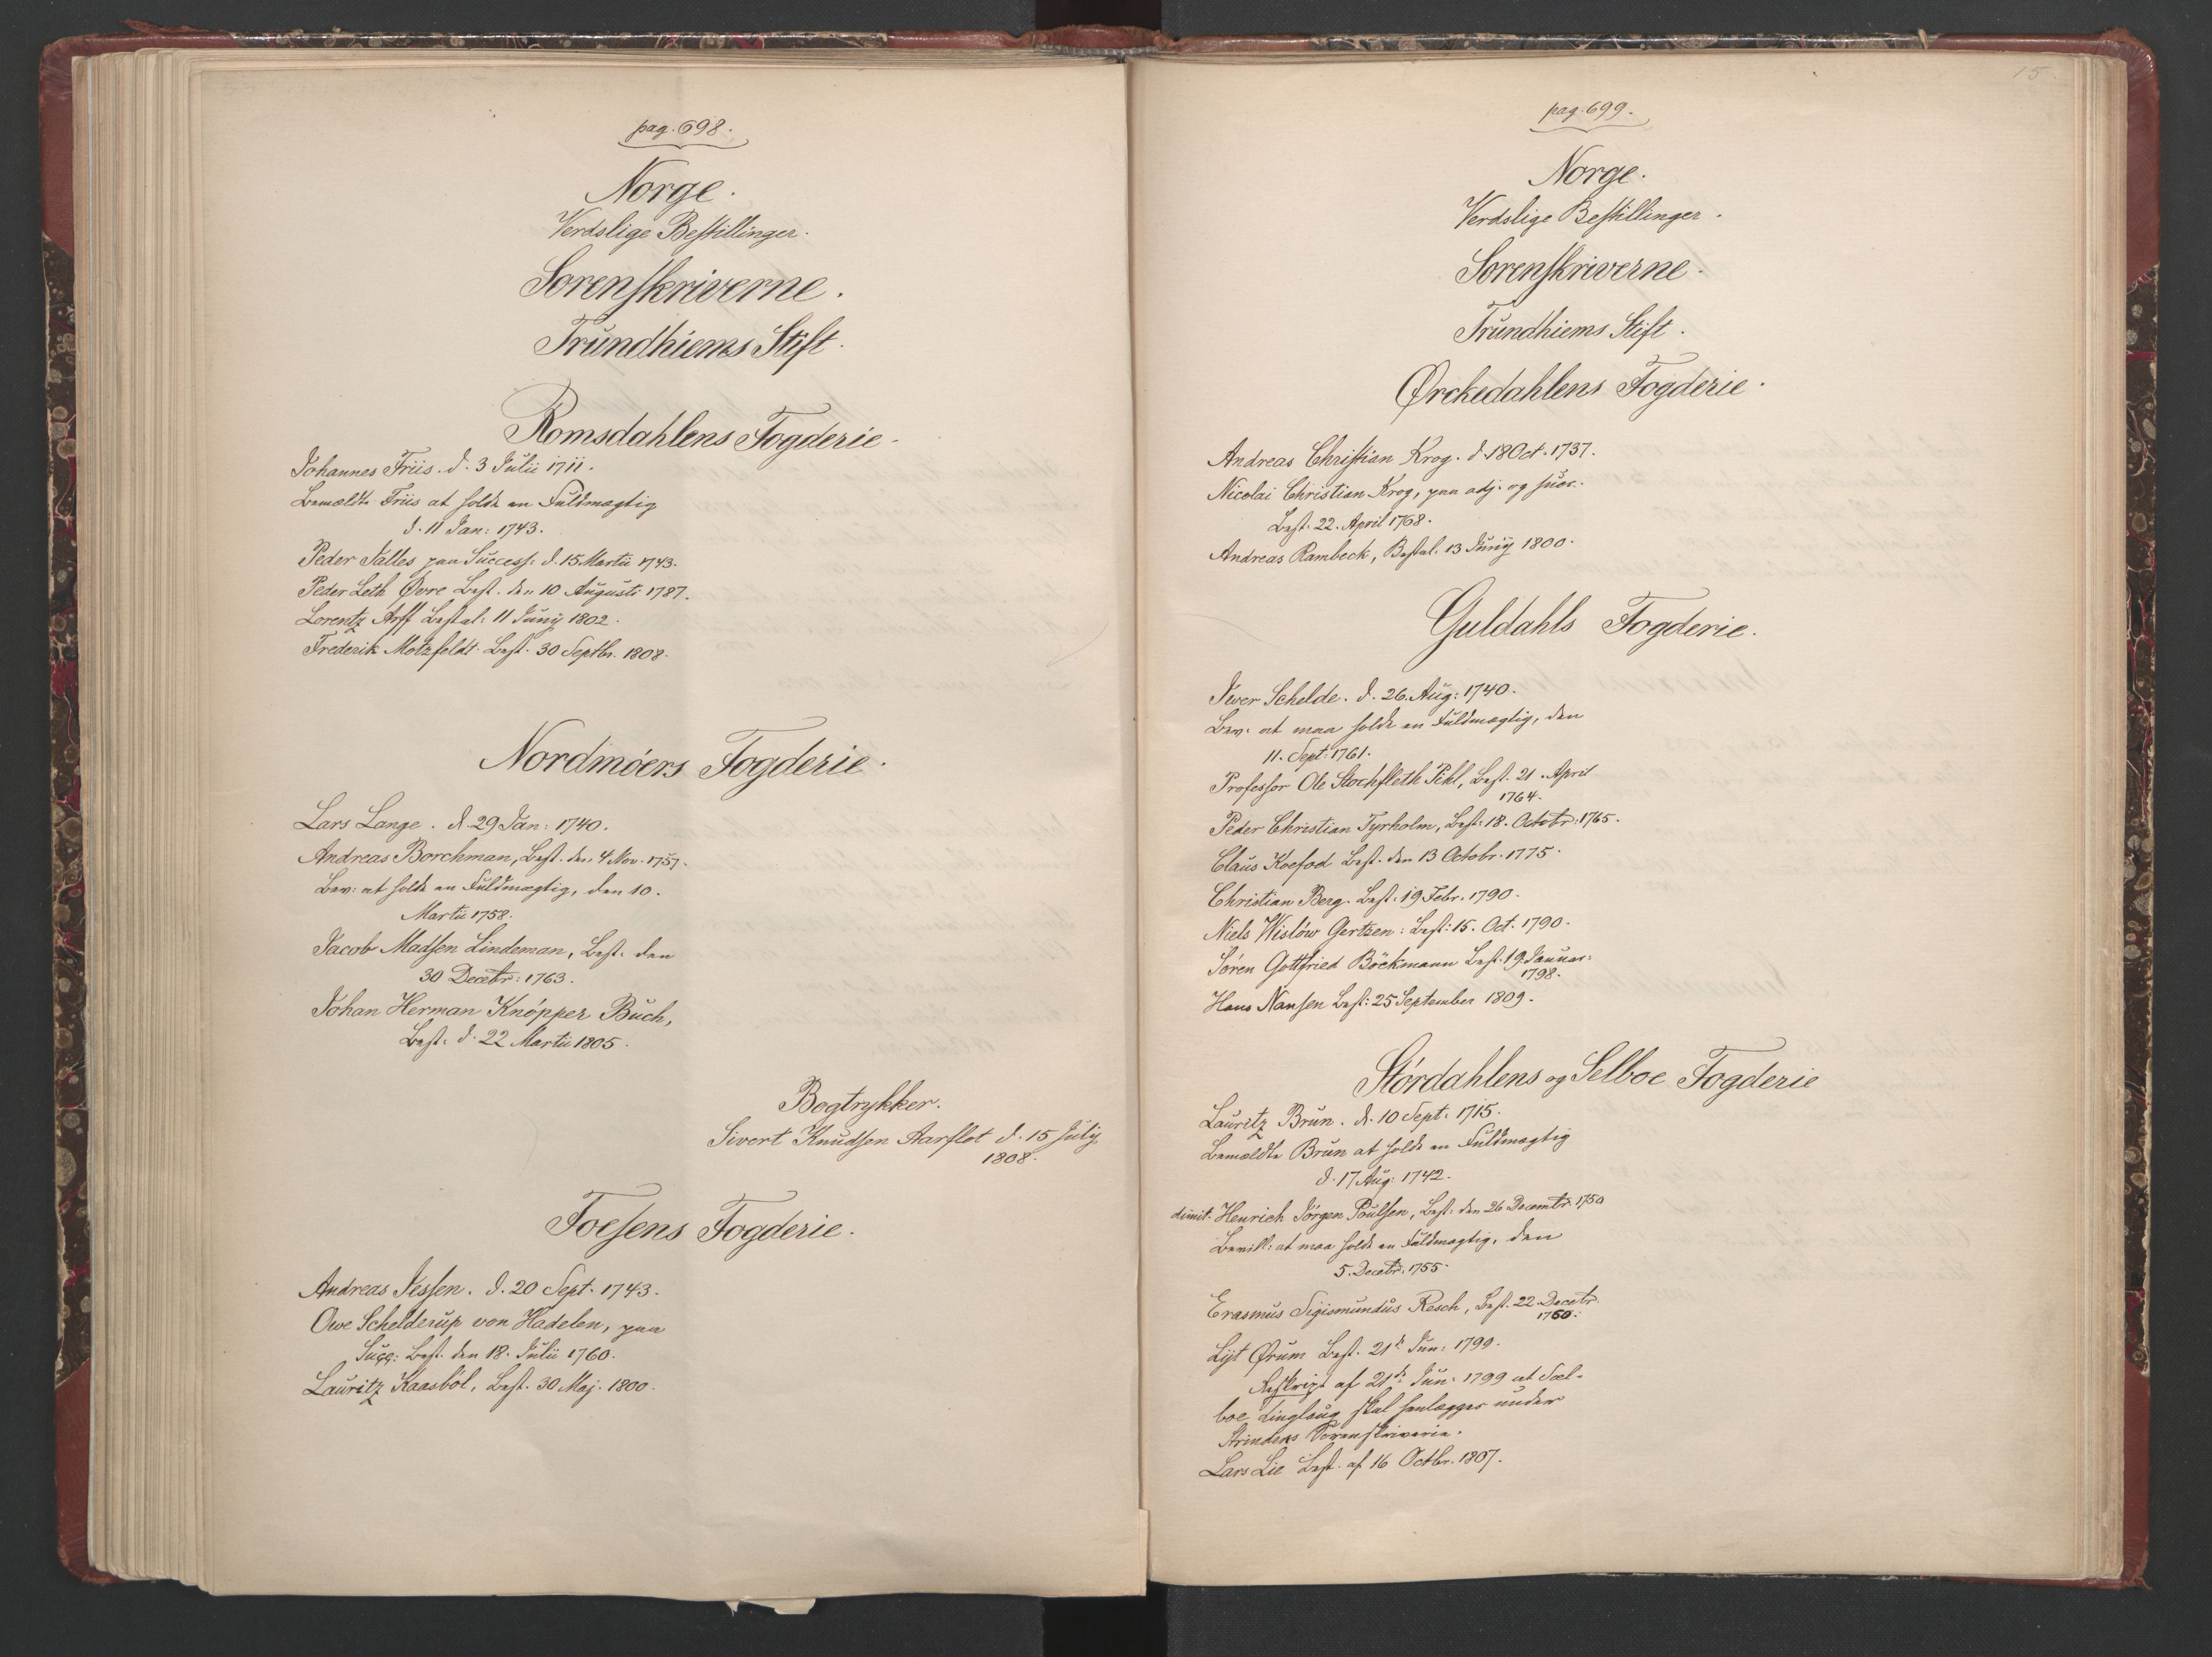 pag. 698.
Norge.
Verdslige Bestillinger.
Sorenskriverne.
Trundhiems Stift.
Romsdahlens Fogderie.
Johannes Friis. d. 3 Julii 1711.
Bemældte Friis at holde en Fuldmægtig
d. 11 Jan: 1743.
Peder Salles paa Success. d. 15. Martii 1743.
Peder Leth Øvre Best. den 10 Augusti 1787.
Lorentz Arff Bestal: 11 Junij 1802.
Frederik Motzfeldt Best. 30 Septbr. 1808.
Nordmøers Fogderie.
Lars Lange. d. 29 Jan: 1740.
Andreas Borchman, Best. den 4 Nov. 1757.
Bev: at holde en Fuldmægtig, den 10.
Martii 1758.
Jacob Madsen Lindeman, Best. den
30 Decebr: 1763.
Johan Herman Knöpper Buch,
Best. d. 22 Martii 1805.
Bogtrykker.
Sivert Knudsen Aarflot d. 15 Julij
1808.
Foesens Fogderie.
Andreas Jessen. d. 20 Sept. 1743.
Owe Schelderup von Hadelen, paa
Sucç: Best. den 18. Julii 1760.
Lauritz Kaasböl, Best. 30 Maj. 1800.
15
pag. 699.
Norge.
Verdslige Bestillinger.
Sorenskriverne.
Trundhiems Stift.
Ørckedahlens Fogderie.
Andreas Christian Krog. d. 18 Oct. 1737.
Nicolai Christian Krog, paa adj. og succ.
Best. 22. April 1768.
Andreas Rambeck, Bestal. 13 Junij 1800.
Guldahls Fogderie.
Iver Schelde. d. 26. Aug: 1740.
Bev: at maa holde en Fuldmægtig, den
11. Sept: 1761.
Professor Ole Stochfleth Pihl, Best. 21. April
1764.
Peder Christian Tyrholm, Best: 18. Octobr: 1765.
Claus Koefod Best. den 13 Octobr. 1775.
Christian Berg. Best. 19 Febr. 1790.
Niels Wislöw Gertzen: Best: 15. Oct. 1790.
Sören Gottfried Böckmann Best. 19. Januar:
1798.
Hans Nansen Best: 25 September 1809.
Stördahlens og Selboe Fogderie
Lauritz Brun. d. 10 Sept: 1715.
Bemældte Brun at holde en Fuldmægtig
d. 17 Aug: 1742.
dimit. Henrich Jörgen Poulsen, Best. den 26 Decembr. 1750
Bevill: at maa holde en Fuldmægtig, den
5. Decebr. 1755.
Erasmus Sigismundus Resch, Best. 22. Decebr.
1760.
Lyt Ørum Best. 21de Jun: 1799.
Reskript af 21de Jun. 1799 at Sæl-
boe Tinglaug skal henlægges under
Strindens Sorenskriverie.
Lars Lie Best. af 16 Octbr. 1807.